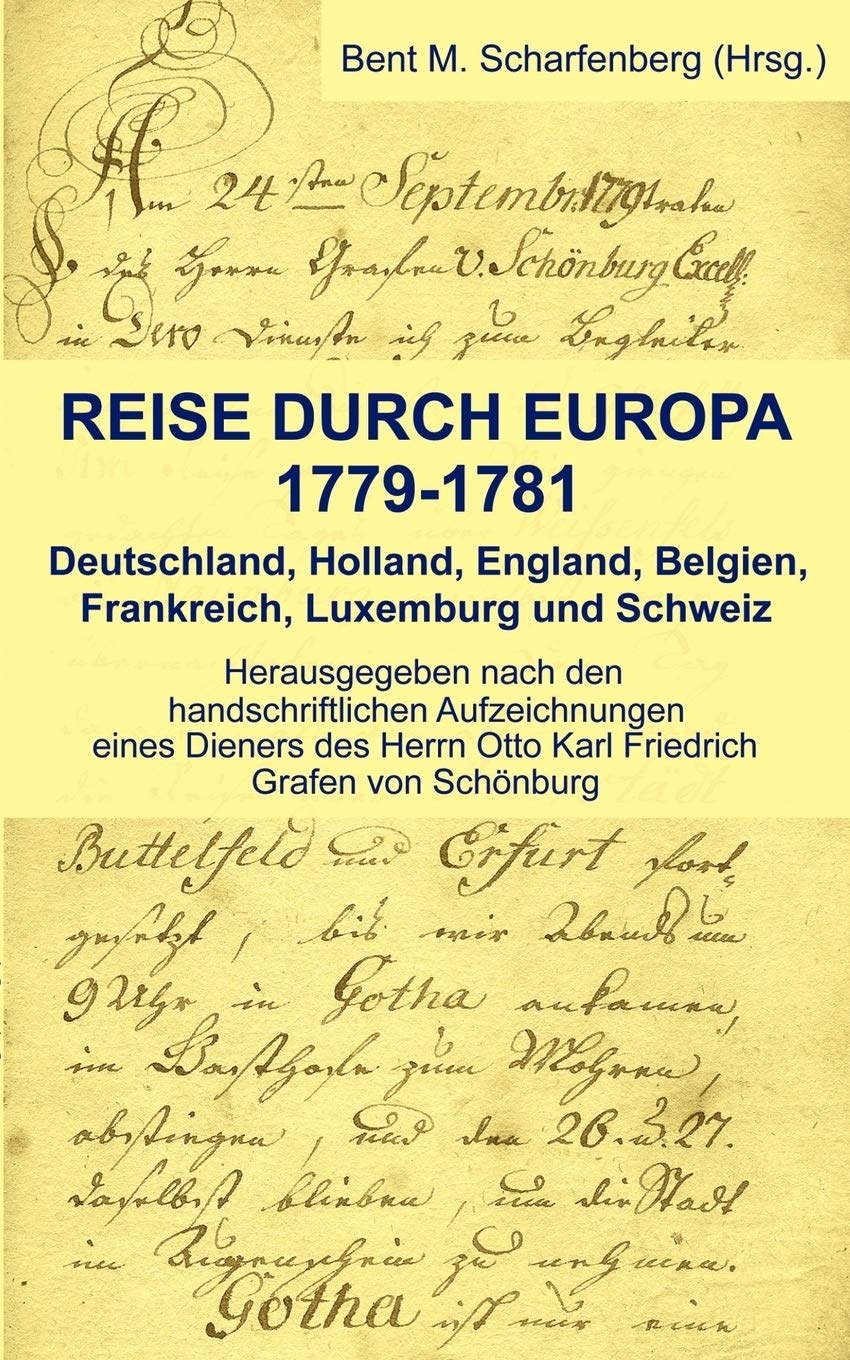 Bent M. Scharfenberg (Hrsg.)
Am 24sten Septembr. 1779 traten
des Herrn Grafen V. Schönburg Excell:
in Dero Dienste ich zum Begleiter
REISE DURCH EUROPA
1779-1781
Deutschland, Holland, England, Belgien,
Frankreich, Luxemburg und Schweiz
Herausgegeben nach den
handschriftlichen Aufzeichnungen
eines Dieners des Herrn Otto Karl Friedrich
Grafen von Schönburg
Buttelfeld und Erfurt fort-
gesetzt, bis wir Abends um
9 Uhr in Gotha ankamen,
im Gasthofe zum Mohren,
abstiegen, und den 26. u. 27.
daselbst blieben, um die Stadt
im Augenschein zu nehmen.
Gotha ist nur eine